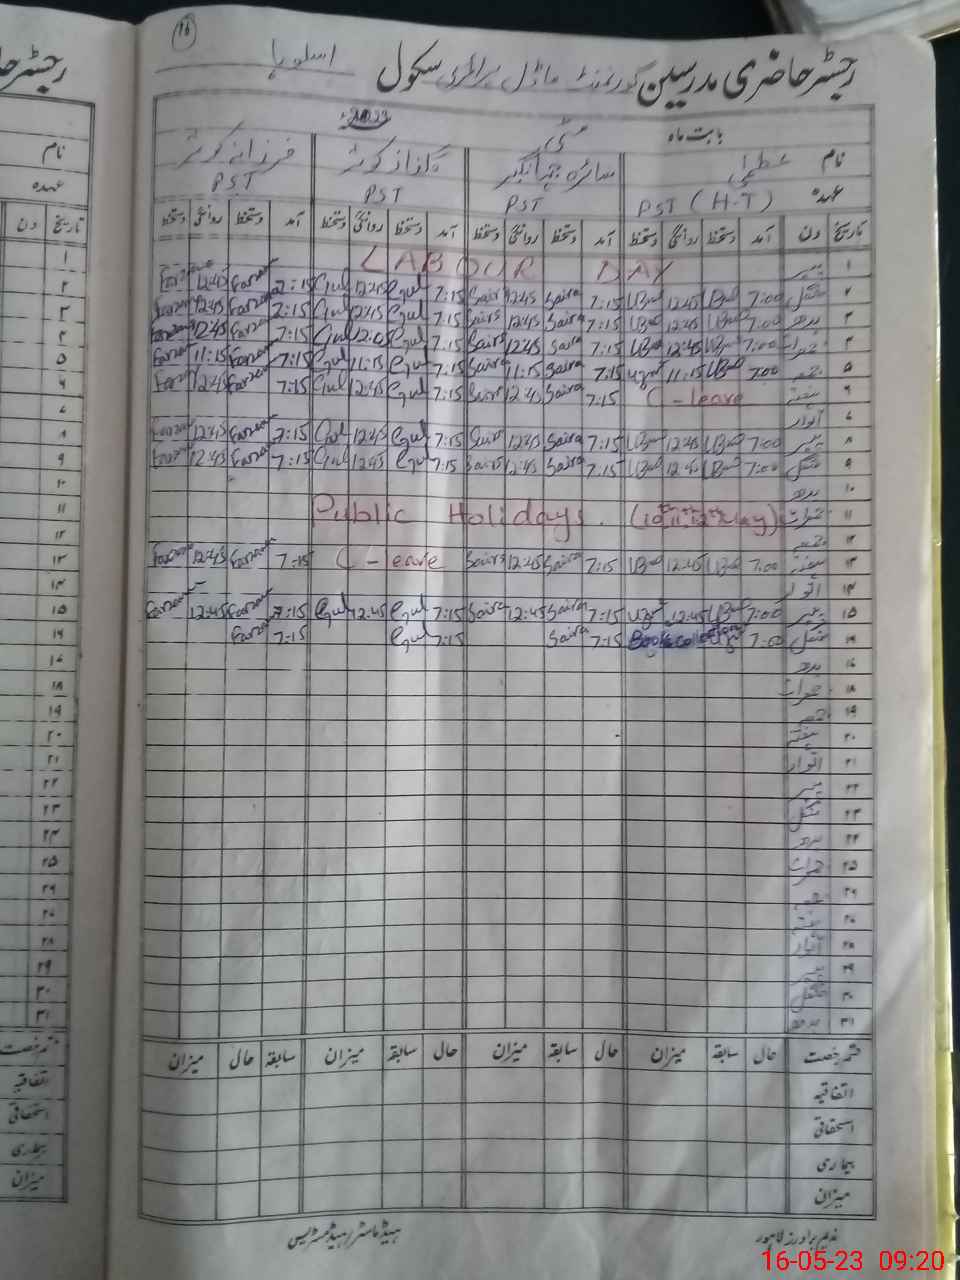 16
رجسٹر حاضری مدرسین گورنمنٹ ماڈل پرائمری سکول اسلوہا
بابت ماہ مئی 2023ء
نام عظمیٰ سائرہ جہانگیر گلناز کوثر فرزانہ کوثر
عہدہ PST (H.T) PST PST PST
تاریخ دن آمد دستخط روانگی دستخط آمد دستخط روانگی دستخط آمد دستخط روانگی دستخط آمد دستخط روانگی دستخط
۱ پیر LABOUR DAY
۲ منگل 7:00 12:45 7:15 Saira 12:45 Saira 7:15 Gul 12:45 Gul 7:15 Farzan 12:45 Farzan
۳ بدھ 7:00 12:45 7:15 Saira 12:45 Saira 7:15 Gul 12:45 Gul 7:15 Farzan 12:45 Farzan
۴ جمعرات 7:00 12:45 7:15 Saira 12:45 Saira 7:15 Gul 12:05 Gul 7:15 Farzan 12:45 Farzan
۵ جمعہ 7:00 11:15 7:15 Saira 11:15 Saira 7:15 Gul 11:15 Gul 7:15 Farzan 11:15 Farzan
۶ ہفتہ C-leave 7:15 Saira 12:45 Saira 7:15 Gul 12:45 Gul 7:15 Farzan 12:45 Farzan
۷ اتوار
۸ پیر 7:00 12:45 7:15 Saira 12:45 Saira 7:15 Gul 12:45 Gul 7:15 Farzan 12:45 Farzan
۹ منگل 7:00 12:45 7:15 Saira 12:45 Saira 7:15 Gul 12:45 Gul 7:15 Farzan 12:45 Farzan
۱۰ بدھ
۱۱ جمعرات Public Holidays. (10th, 11th, 12th May)
۱۲ جمعہ
۱۳ ہفتہ 7:00 12:45 7:15 Saira 12:45 Saira C-leave 7:15 Farzan 12:45 Farzan
۱۴ اتوار
۱۵ پیر 7:00 12:45 7:15 Saira 12:45 Saira 7:15 Gul 12:45 Gul 7:15 Farzan 12:45 Farzan
۱۶ منگل 7:00 Book collection 7:15 Saira 7:15 Gul 7:15 Farzan
۱۷ بدھ
۱۸ جمعرات
۱۹ جمعہ
۲۰ ہفتہ
۲۱ اتوار
۲۲ پیر
۲۳ منگل
۲۴ بدھ
۲۵ جمعرات
۲۶ جمعہ
۲۷ ہفتہ
۲۸ اتوار
۲۹ پیر
۳۰ منگل
۳۱ بدھ
قسم رخصت حال سابقہ میزان حال سابقہ میزان حال سابقہ میزان حال سابقہ میزان
اتفاقیہ
استحقاقی
بیماری
میزان
ندیم برادرز لاہور ہیڈ ماسٹر/ہیڈ مسٹریس
16-05-23 09:20